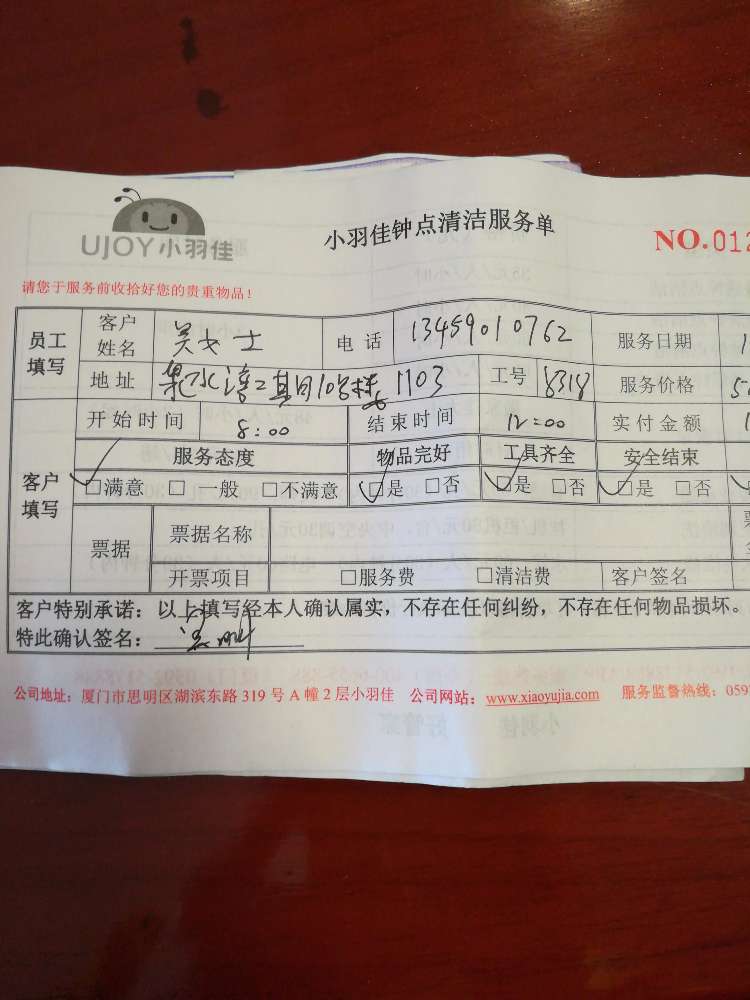 UJOY小羽佳
小羽佳钟点清洁服务单
NO.012
请您于服务前收拾好您的贵重物品!
员工填写 客户姓名 吴女士 电话 13459010762 服务日期 1
地址 水 二期10号楼1103 工号 8318 服务价格 5
开始时间 8:00 结束时间 12:00 实付金额 1
客户填写 服务态度 物品完好 工具齐全 安全结束
□满意 □一般 □不满意 □是 □否 □是 □否 □是 □否
票据 票据名称
开票项目 □服务费 □清洁费 客户签名
客户特别承诺:以上填写经本人确认属实,不存在任何纠纷,不存在任何物品损坏。
特此确认签名:
公司地址:厦门市思明区湖滨东路319号A幢2层小羽佳 公司网站:www.xiaoyujia.com 服务监督热线:059